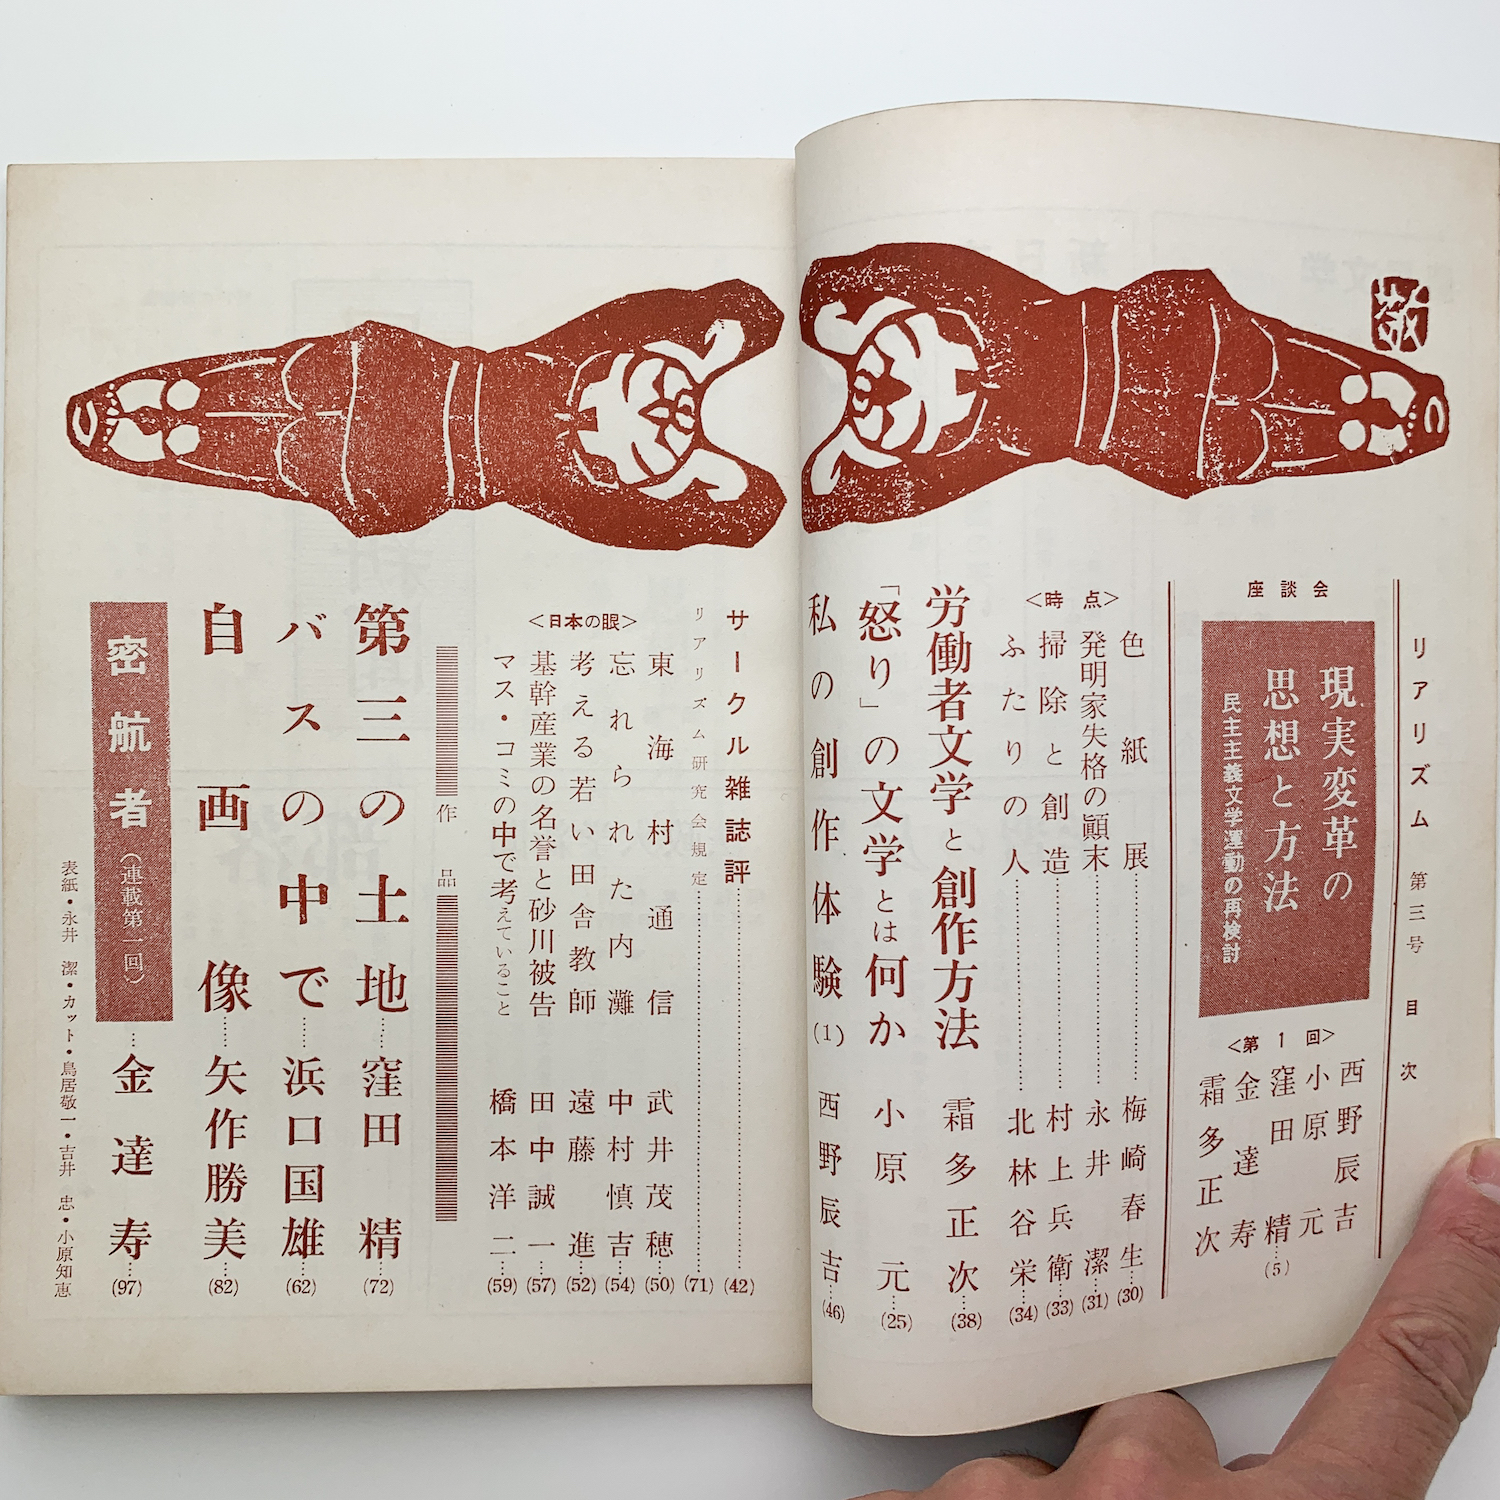 敬
リアリズム 第三号 目次
座談会
現実変革の
思想と方法
民主主義文学運動の再検討
<第1回>
西野辰吉
小原元
窪田精……(5)
金達寿
霜多正次
<時点>
色紙展……梅崎春生…(30)
発明家失格の顚末……永井潔…(31)
掃除と創造……村上兵衛…(33)
ふたりの人……北林谷栄…(34)
労働者文学と創作方法 霜多正次…(38)
「怒り」の文学とは何か 小原元…(25)
私の創作体験(1) 西野辰吉…(46)
サークル雑誌評……(42)
リアリズム研究会規定……(71)
<日本の眼>
東海村通信 武井茂穂…(50)
忘れられた内灘 中村慎吉…(54)
考える若い田舎教師 遠藤進…(52)
基幹産業の名誉と砂川被告 田中誠一…(57)
マス・コミの中で考えていること 橋本洋二…(59)
作品
第三の土地……窪田精…(72)
バスの中で……浜口国雄…(62)
自画像……矢作勝美…(82)
密航者(連載第一回)…金達寿…(97)
表紙・永井潔・カット・鳥居敬一・吉井忠・小原知恵